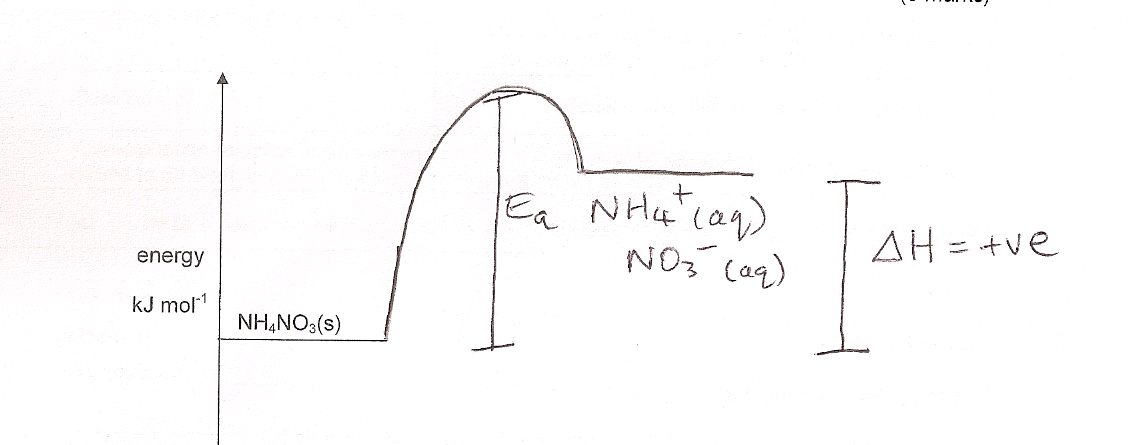 energy
kJ mol⁻¹
NH₄NO₃(s)
Ea NH₄⁺(aq)
NO₃⁻(aq)
ΔH = +ve